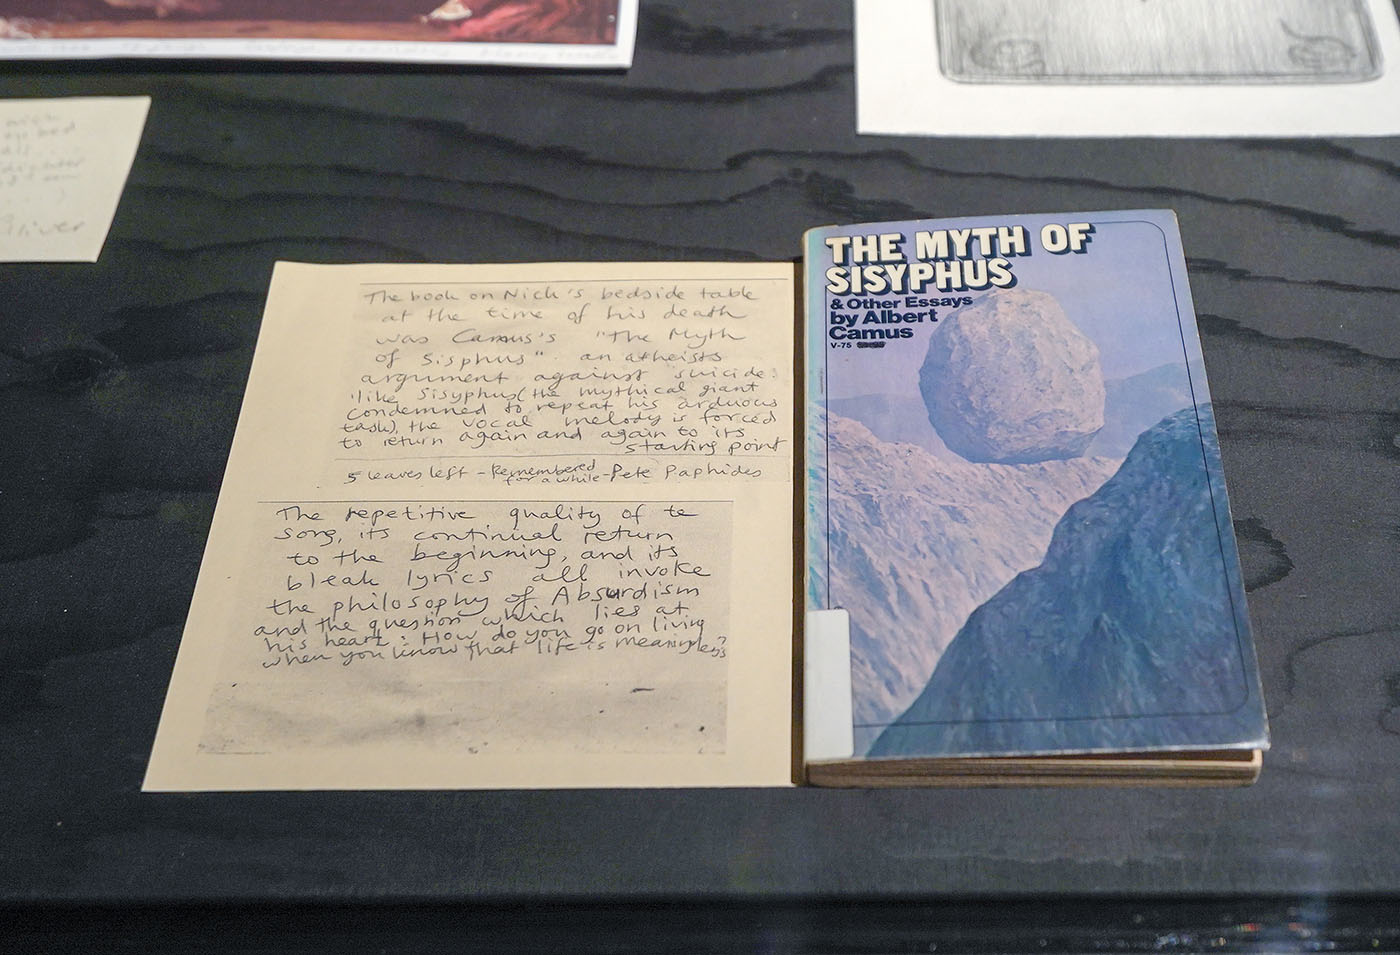 The book on Nick's bedside table
at the time of his death
was Camus's "The Myth
of Sisphus" an atheists
argument against suicide:
'like Sisyphus (the mythical giant
condemned to repeat his arduous
task), the vocal melody is forced
to return again and again to its
starting point
5 leaves left - Remembered
for a while - Pete Paphides
The repetitive quality of te
song, its continual return
to the beginning, and its
bleak lyrics all invoke
the philosophy of Absurdism
and the question which lies at
his heart: How do you go on living
when you know that life is meaningless?
THE MYTH OF
SISYPHUS
& Other Essays
by Albert
Camus
V-75
Oliver